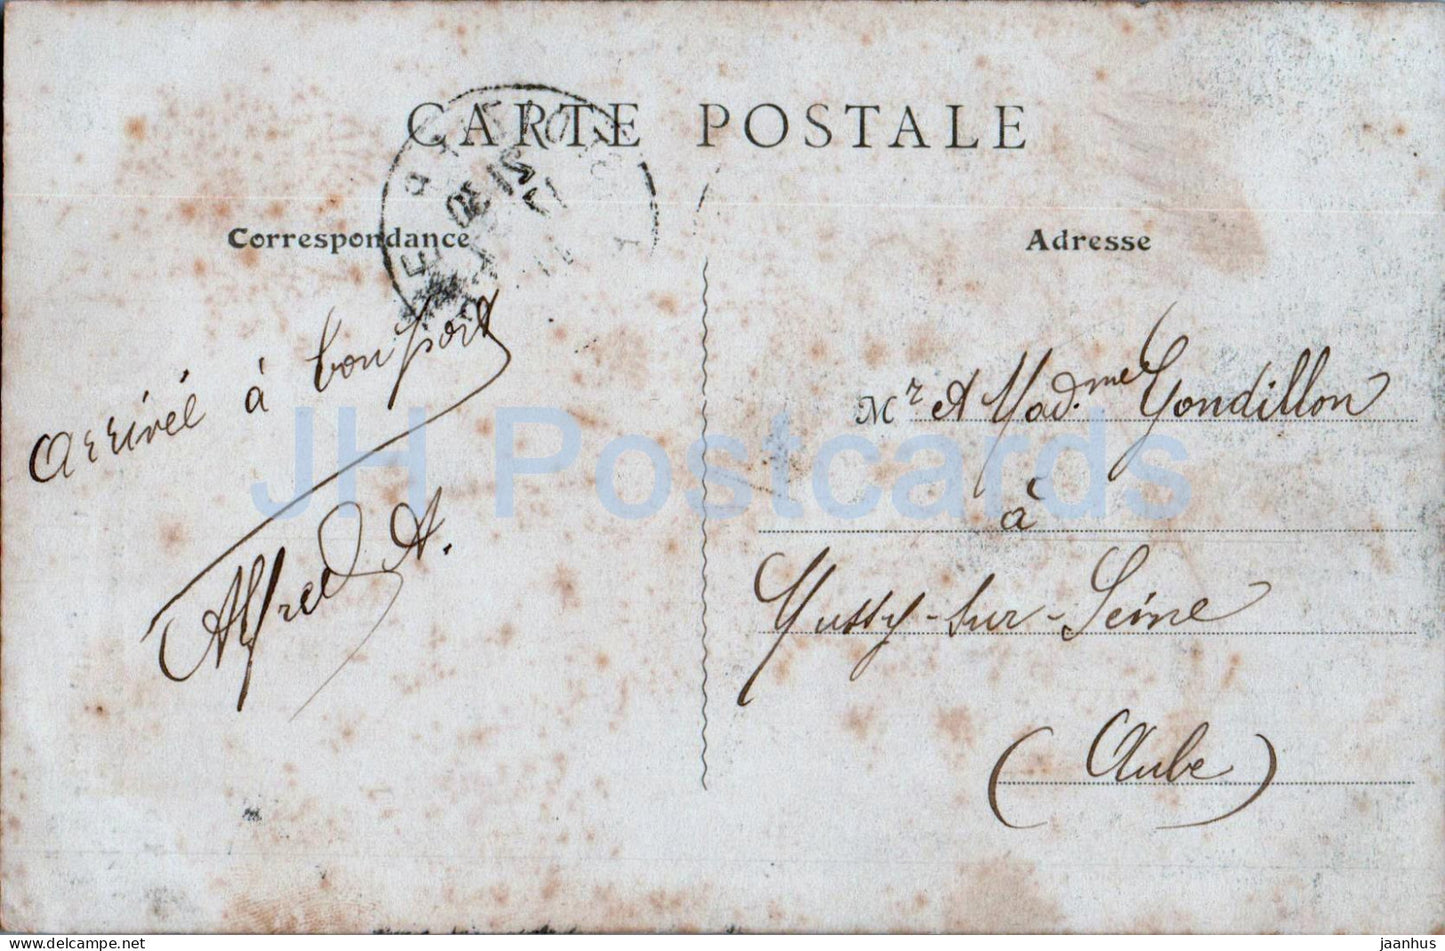 CARTE POSTALE
Correspondance
Adresse
15 30
arrivée à bon port
Alfred A.
Mr et Mad.me Gondillon
à
Mussy-sur-Seine
(Aube)
JH Postcards
delcampe.net
jaanhus